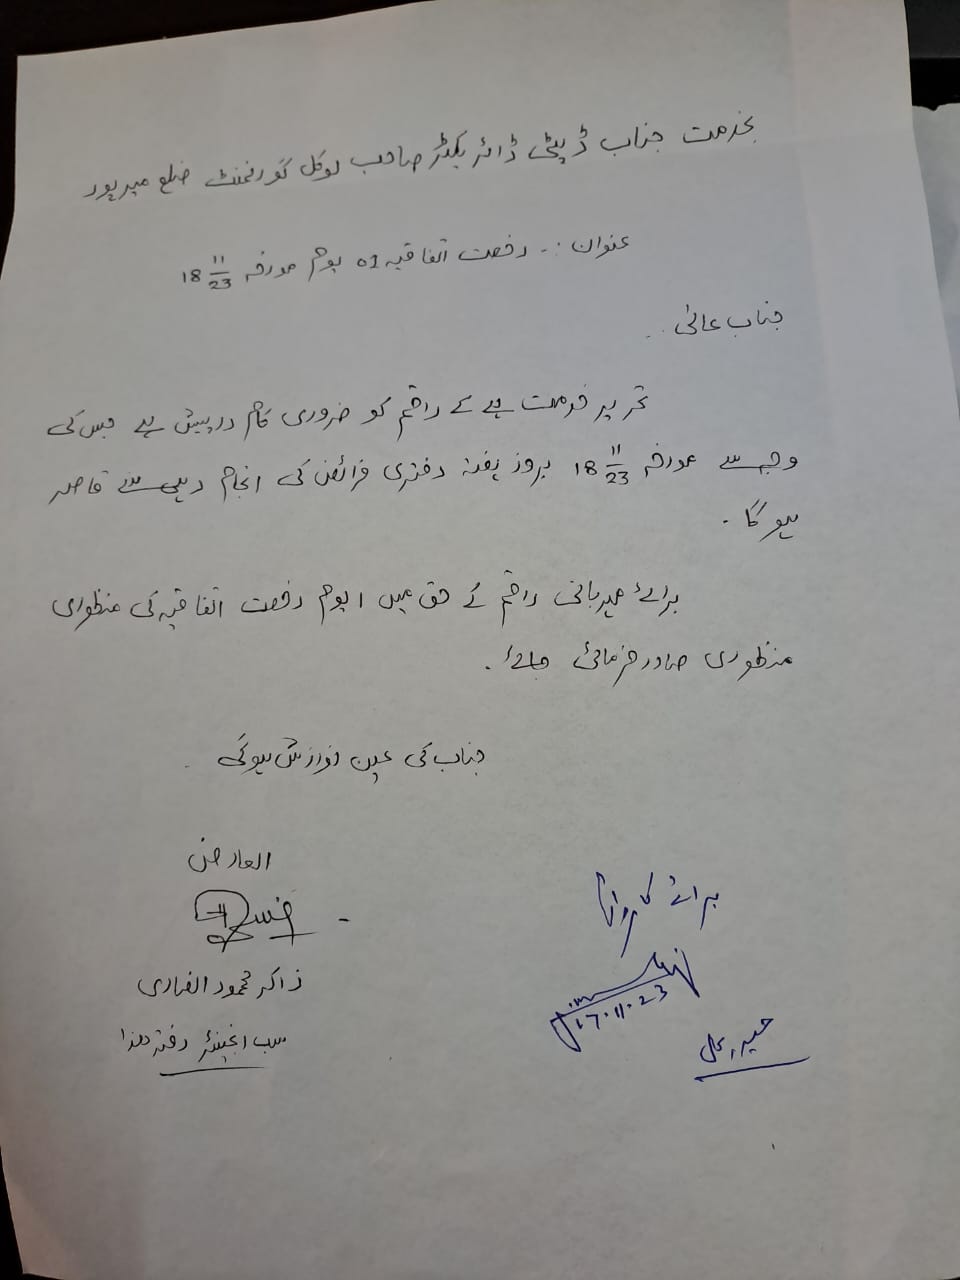 بخدمت جناب ڈپٹی ڈائریکٹر صاحب لوکل گورنمنٹ ضلع میرپور
عنوان :۔ رخصت اتفاقیہ 01 یوم مورخہ 18 11/23
جناب عالی
تحریر خدمت ہے کے راقم کو ضروری کام درپیش ہے جس کی
وجہ سے مورخہ 18 11/23 بروز ہفتہ دفتری فرائض کی انجام دہی سے قاصر
ہو گا ۔
برائے مہربانی راقم کے حق میں 1 یوم رخصت اتفاقیہ کی منظوری
منظوری صادر فرمائی جائے ۔
جناب کی عین نوازش ہوگی
العارض
ذاکر محمود انصاری
سب انجینئر دفتر ھذا
برائے کاروائی
17.11.23